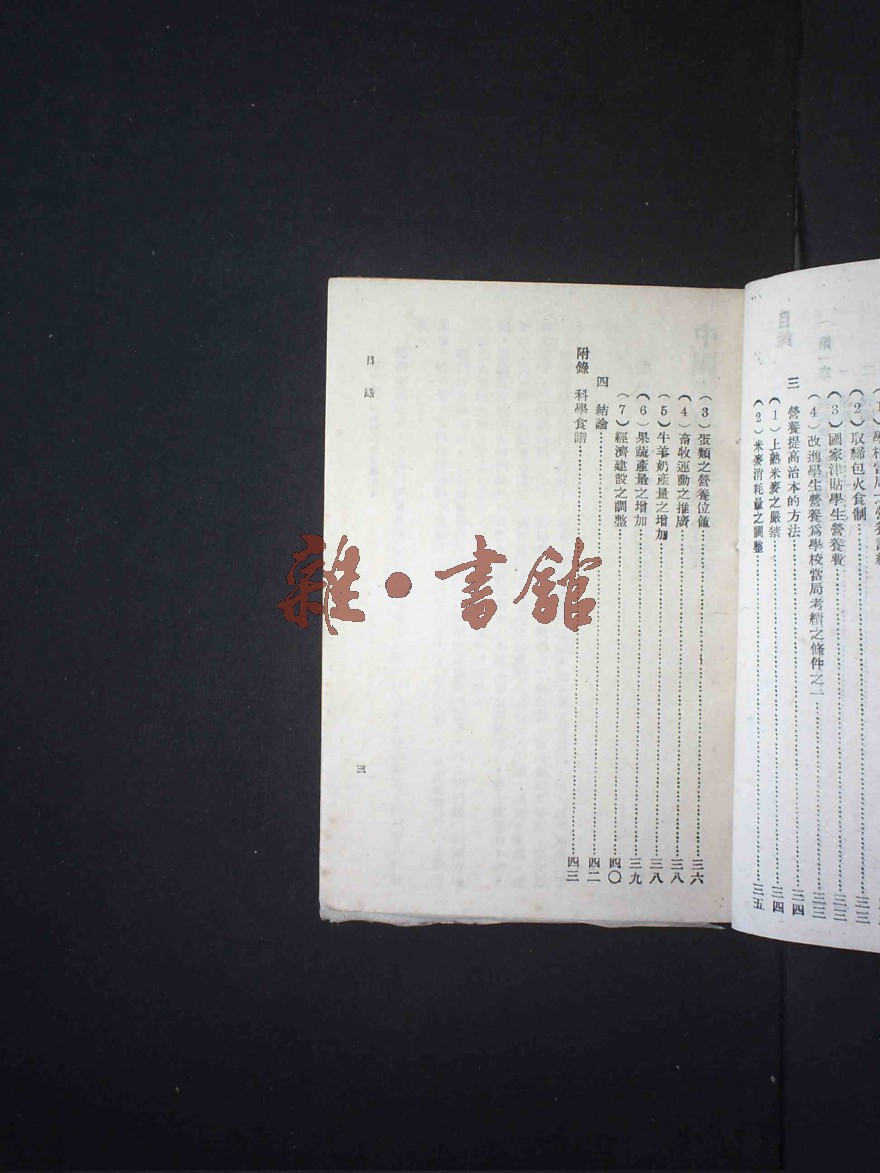 (2)取締包火食制……三三
(3)國家津貼學生營養費……三三
(4)改進學生營養爲學校當局考績之條件之一……三三
三 營養提高治本的方法……三四
(1)上熟米麥之嚴禁……三四
(2)米麥消耗量之調整……三五
(3)蛋類之營養位値……三六
(4)畜牧運動之推廣……三八
(5)牛羊奶產量之增加……三八
(6)果蔬產量之增加……三九
(7)經濟建設之調整……四〇
四 結論……四二
附錄 科學食譜……四三
目錄
三
雜·書館